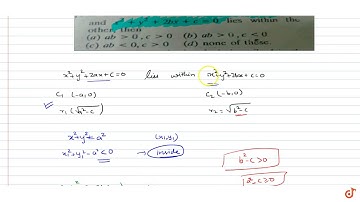 and x²+y²+2bx+c=0, lies within the
other, then
(a) ab>0, c>0 (b) ab>0, c<0
(c) ab<0, c>0 (d) none of these.
x²+y²+2ax+c=0 lies within x²+y²+2bx+c=0
C₁ (-a,0) C₂ (-b,0)
r₁ (√b²-c r₂=√b²-c
x²+y²=a² (x₁,y₁)
x₁²+y₁²-a²<0 → inside
b²-c>0
a²-c>0